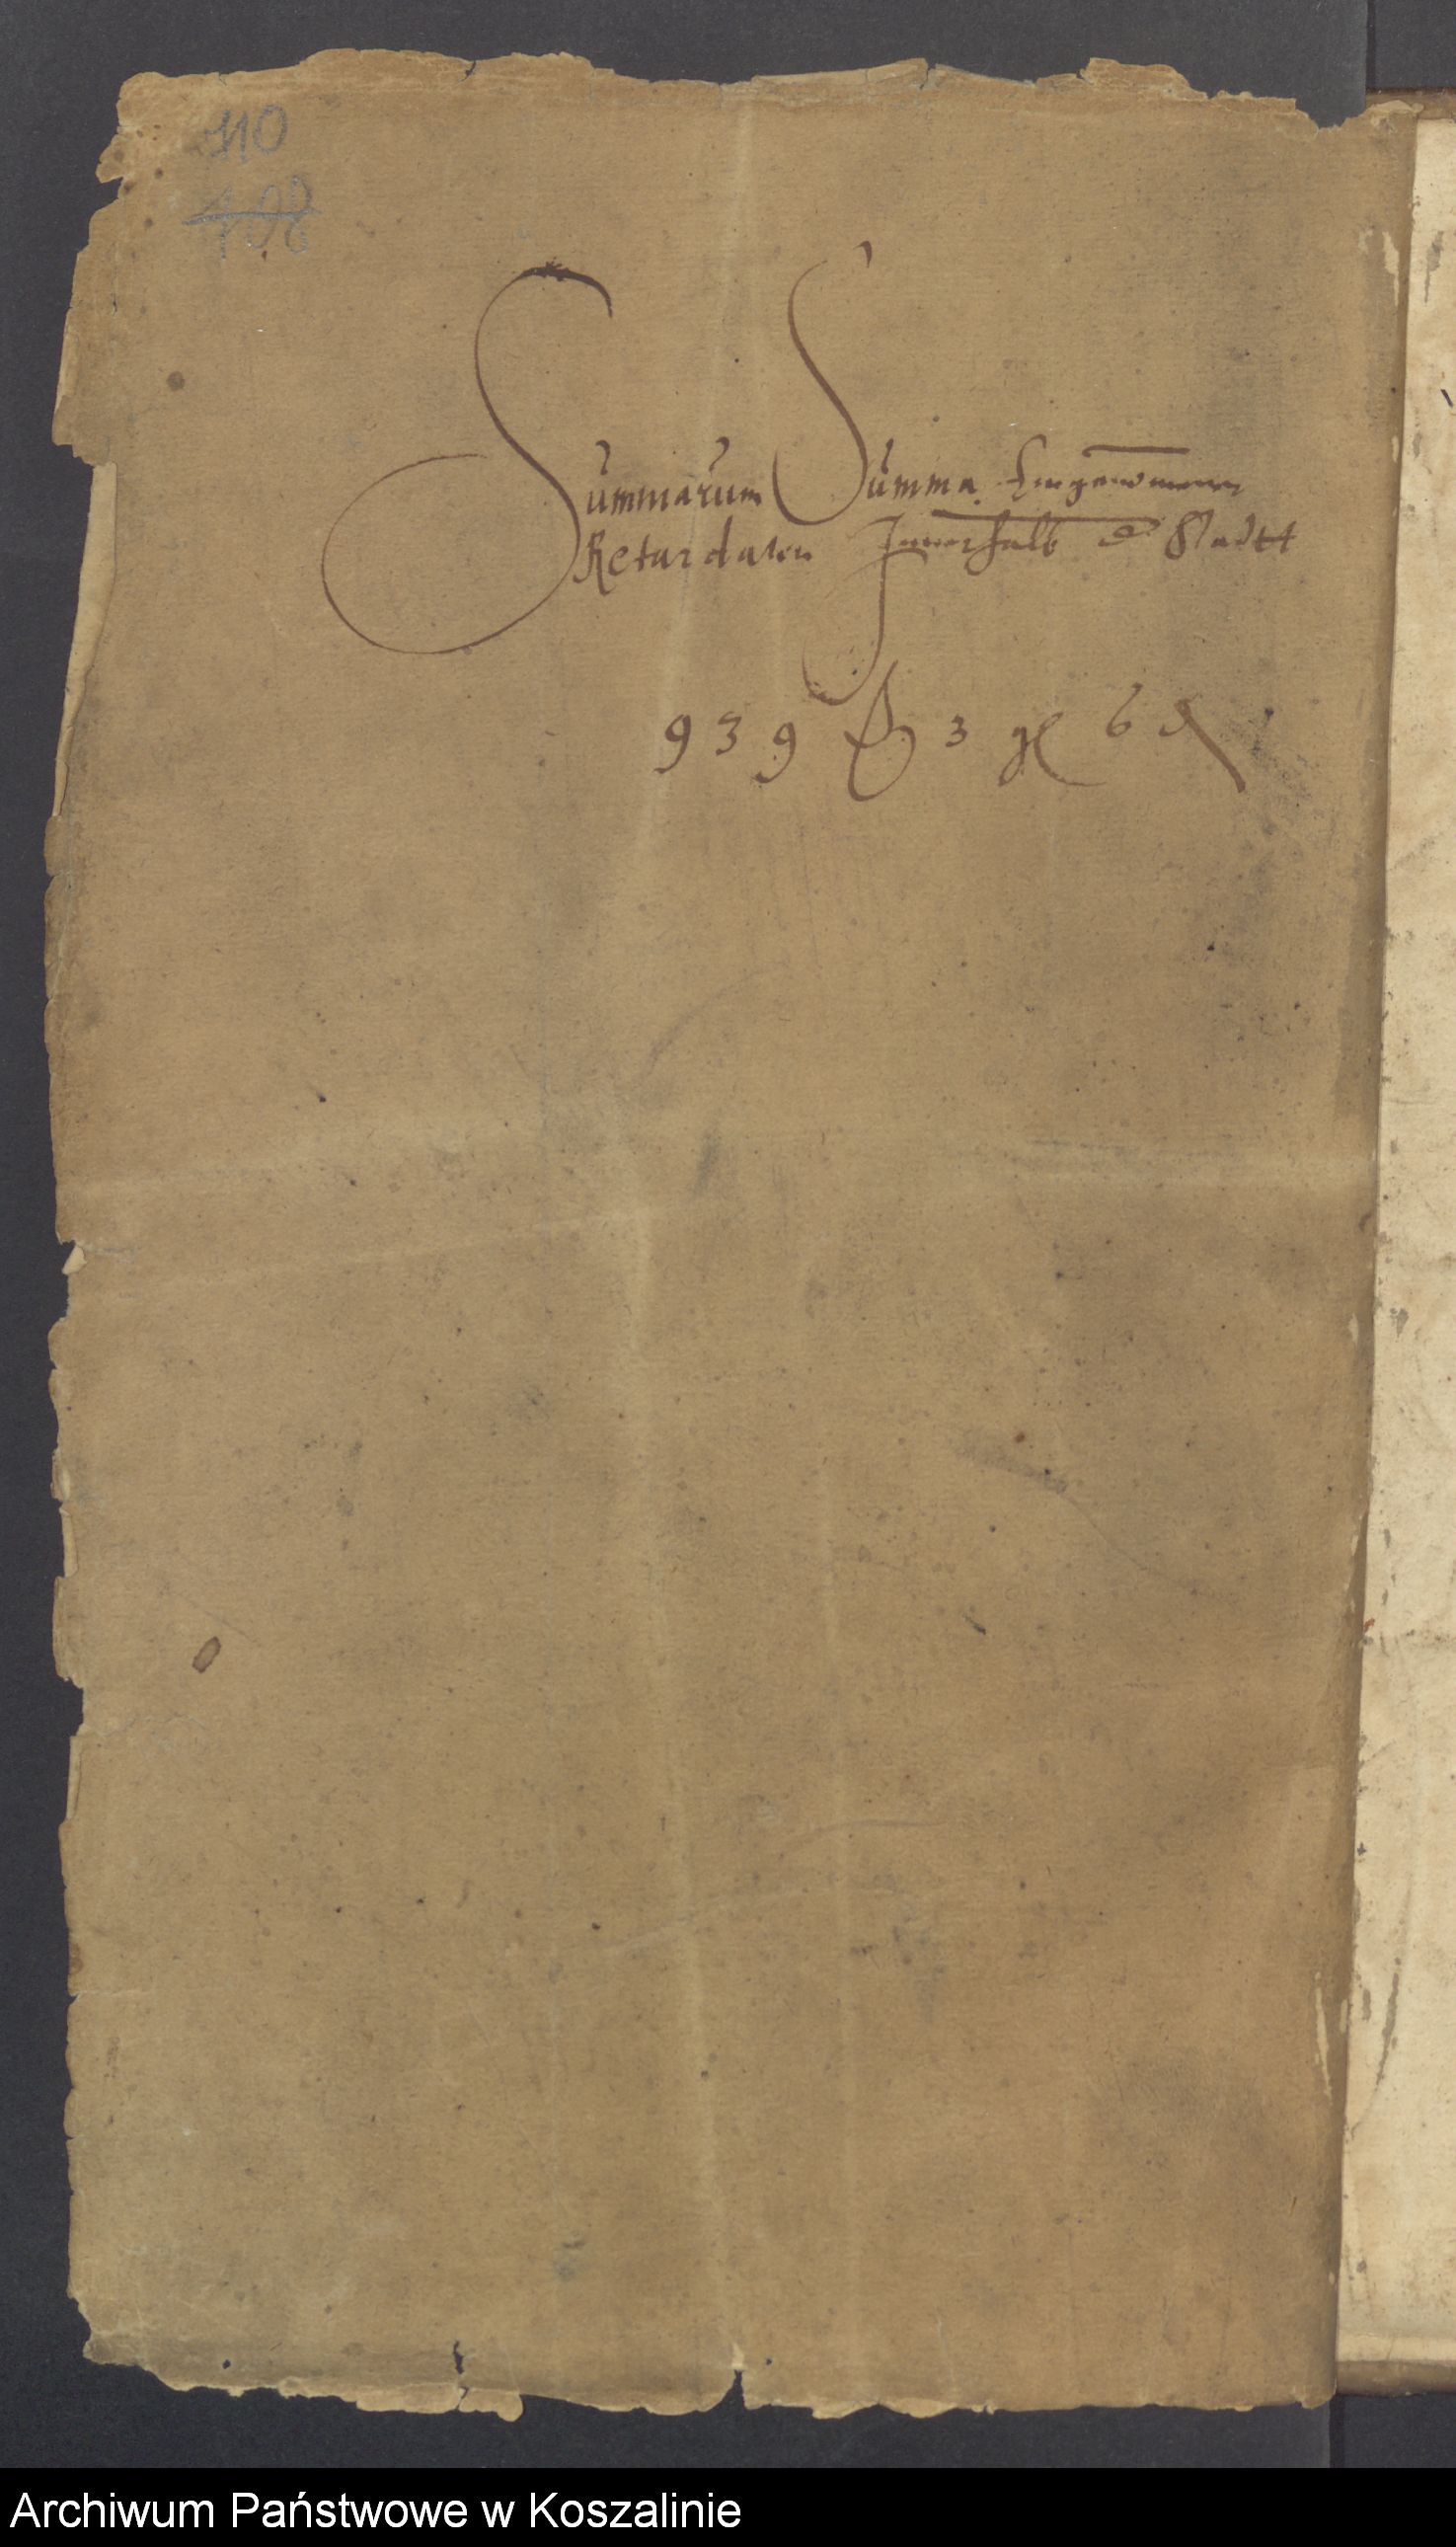 110
108
Summarum Summa Eingenommener
Retardaten Innerhalb d Stadtt
939 fl 3 gl 6 d
Archiwum Państwowe w Koszalinie